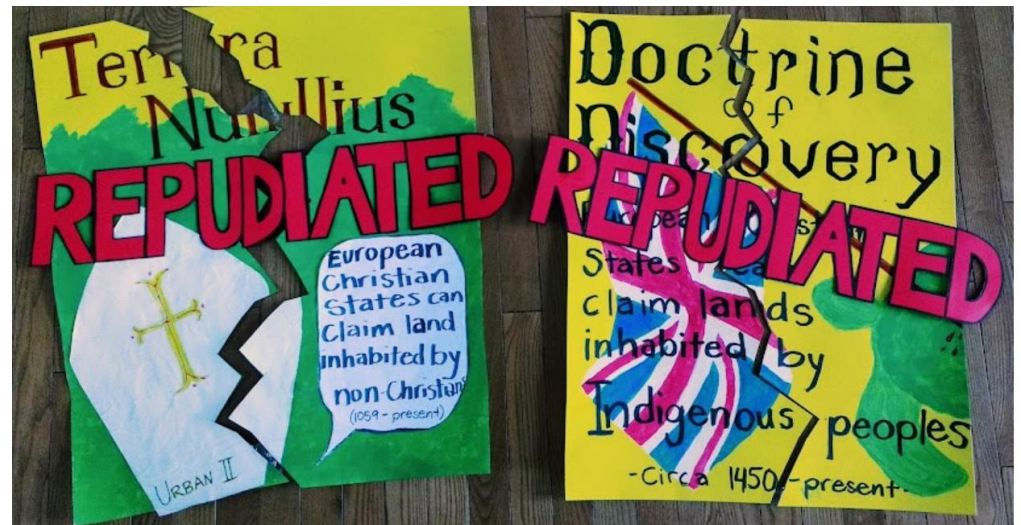 Terra
Nullius
REPUDIATED
European
Christian
States can
claim land
inhabited by
non-Christians
(1059 - present)
URBAN II
Doctrine
of
Discovery
REPUDIATED
States
claim lands
inhabited by
Indigenous peoples
-Circa 1450-present-